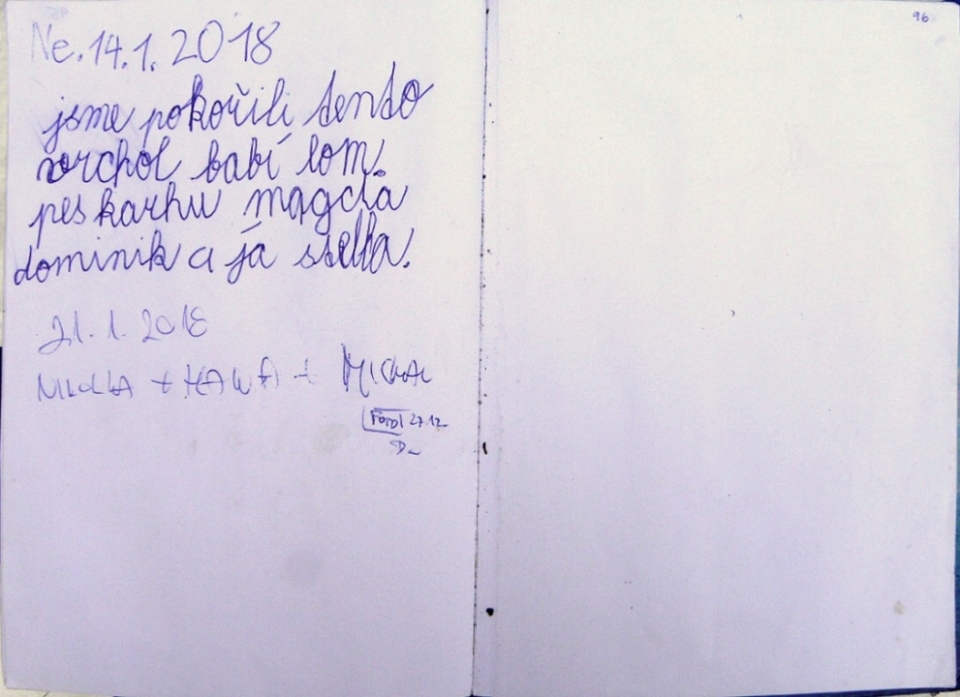 Ne. 14.1. 2018
jsme pokořili tento
vrchol babí lom.
pes karhu magda
dominik a já stella.
21. 1. 2018
NIKOLA + HANKA + MICHAL
27.12
96